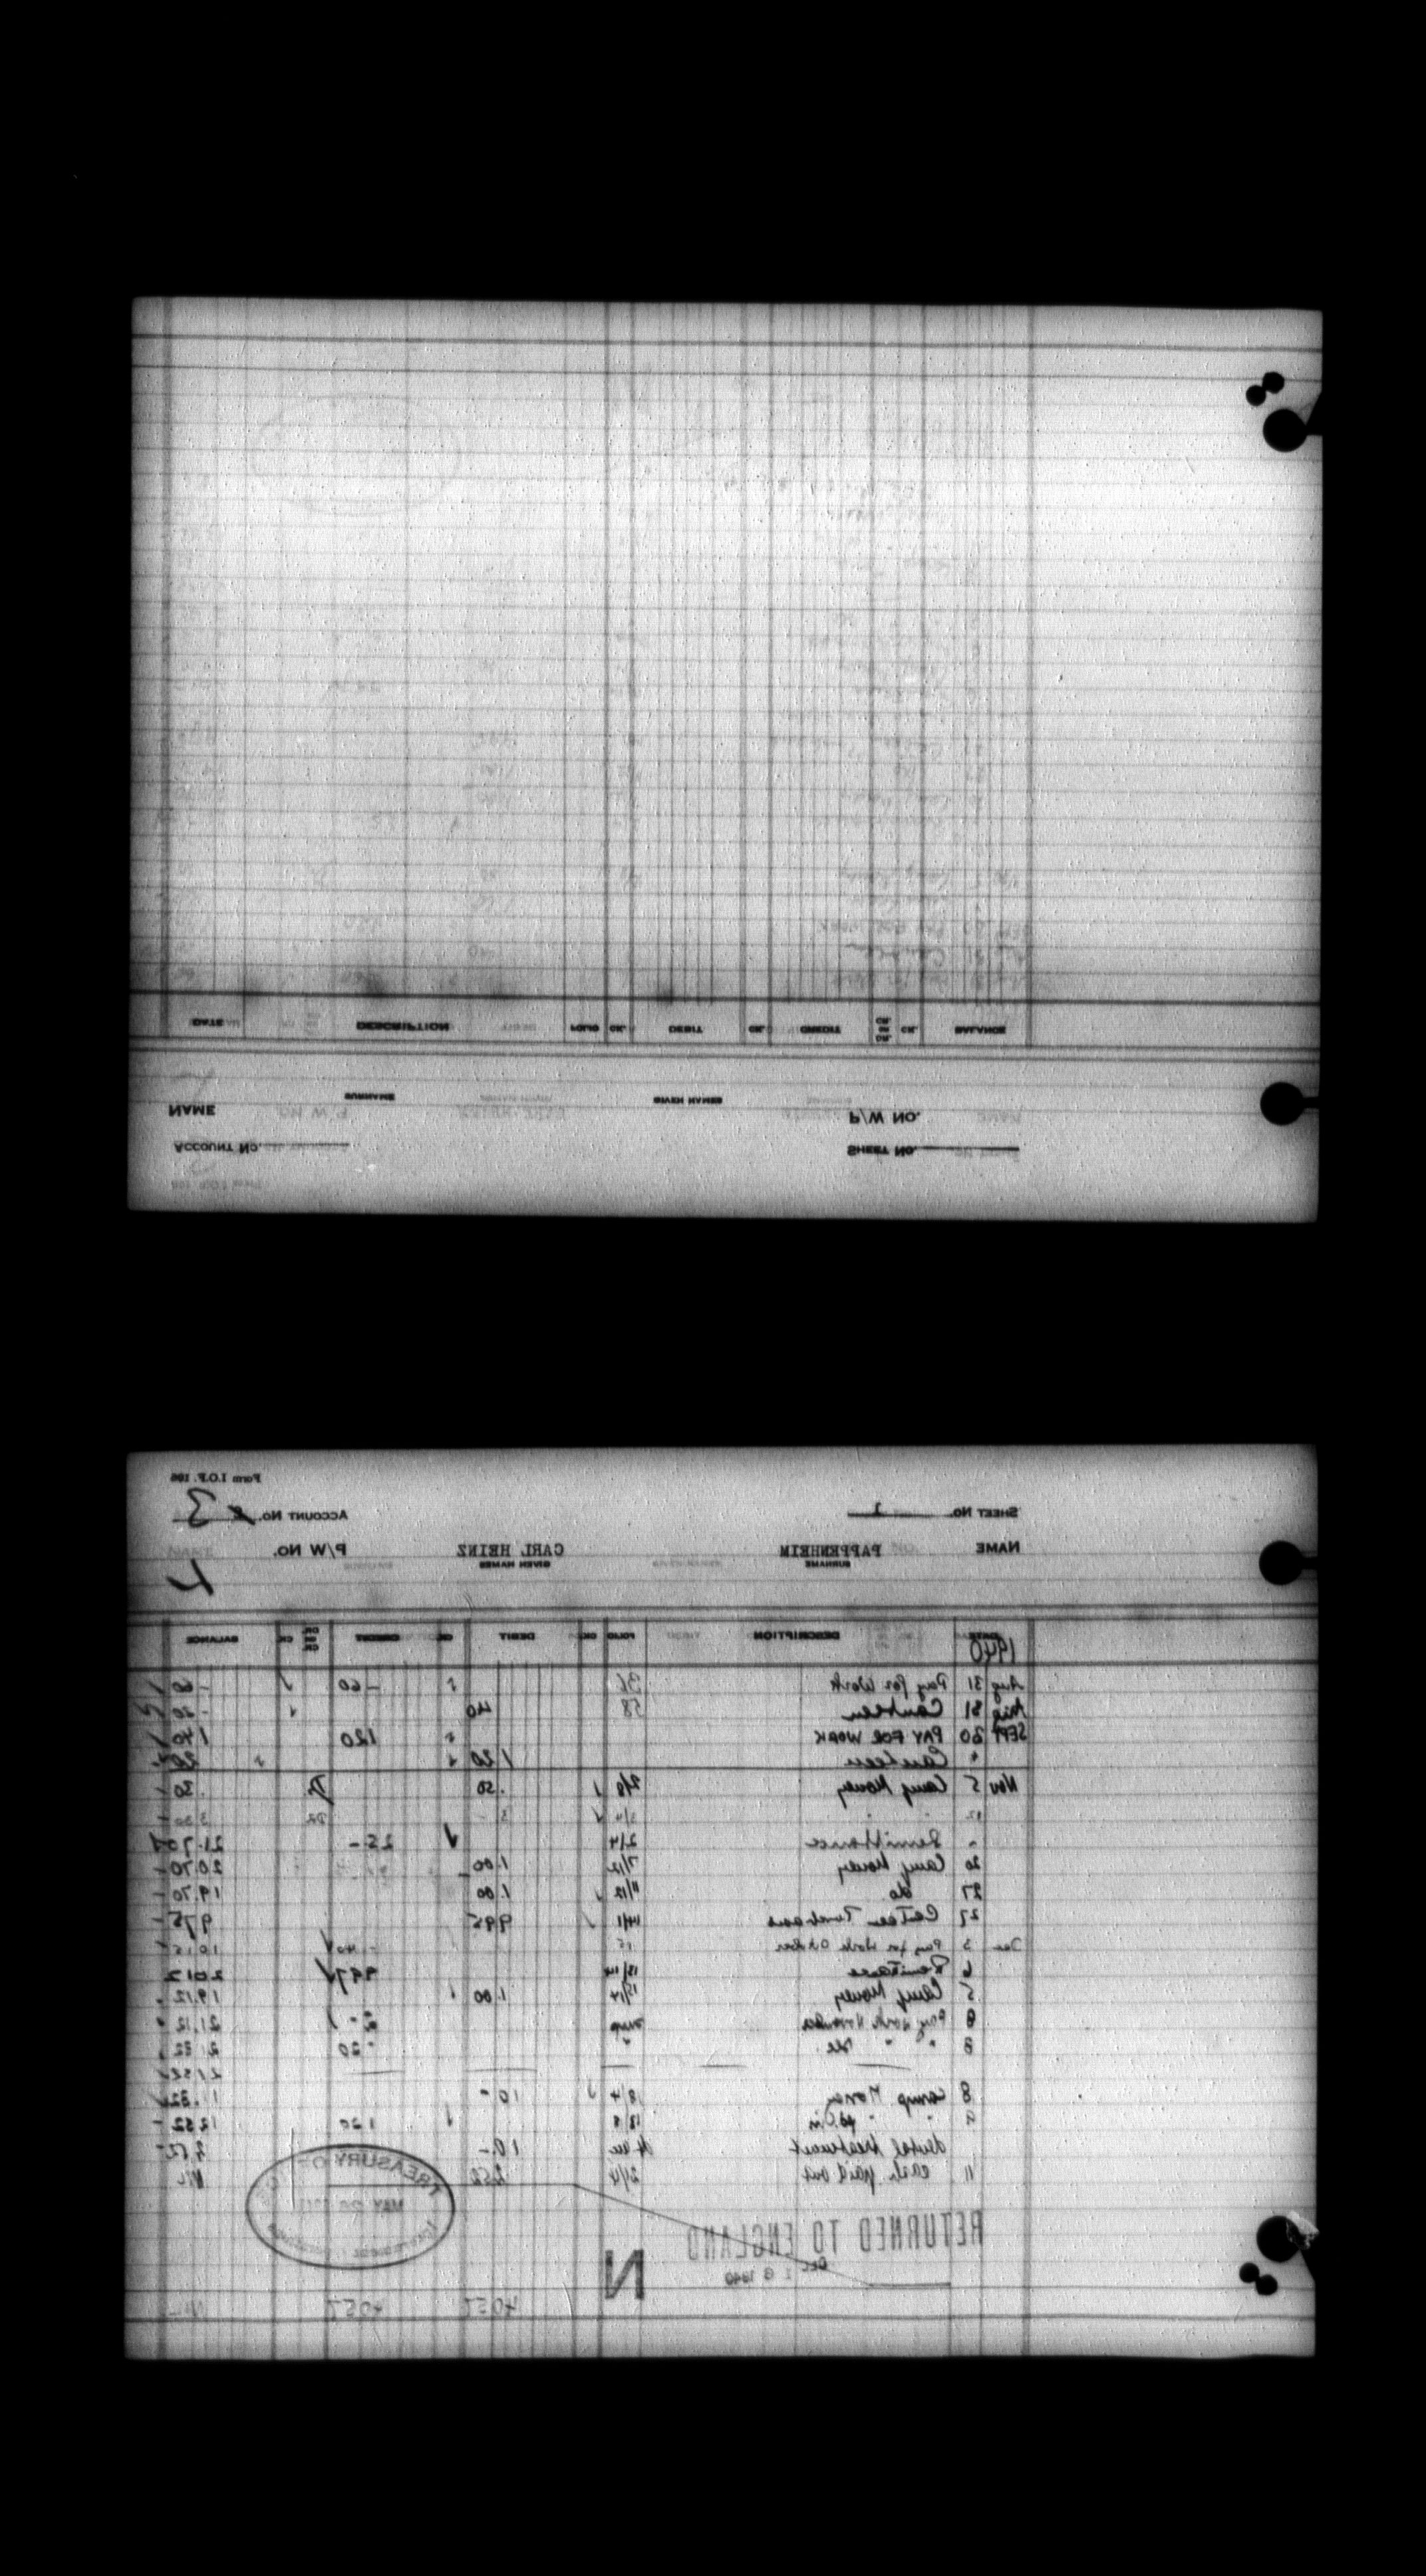 DATE DESCRIPTION FOLIO CK. DEBIT CK. CREDIT CR. OR DR. CK. BALANCE
NAME SURNAME GIVEN NAMES P/W NO.
ACCOUNT NO. SHEET NO.
Form I.O.P. 106
SHEET NO. 1 ACCOUNT NO. 3
NAME PAPPENHEIM CARL HEINZ P/W NO.
SURNAME GIVEN NAMES
L
DATE DESCRIPTION FOLIO CK DEBIT CK CREDIT CR. OR DR. CK BALANCE
1940
Aug 31 Pay for Work 36 - 60 - 60
Aug 31 Canteen 58 40 - 20
SEPT 30 PAY FOR WORK 120 1 40
" Canteen 1 20 20
Nov 5 Camp Money 2/8 .50 .30
12 " " 3/4 3 - DR 3 30
" Remittance 2/4 25 - 21.70
20 Camp Money 7/12 1.00 20.70
27 do. 11/12 1.00 19.70
27 Canteen Purchases 14/1 995 975
Dec 3 Pay for Work October 15 - 40 10 15
6 Remittance 13/14 997 2012
5 Camp Money 13/14 1.00 19.12
8 Pay work November 2 - 21.12
8 " " Dec. " 20 21 32
21 32
8 Camp Money 18/4 10 - 11.32
9 " " pd. in 18/8 1 20 12 52
dental treatment 10.- 2 52
11 cash paid out 21/4 2 52 NIL
TREASURY O
MAY 20
RETURNED TO ENGLAND
DEC 1940
N
4057 4057 NIL